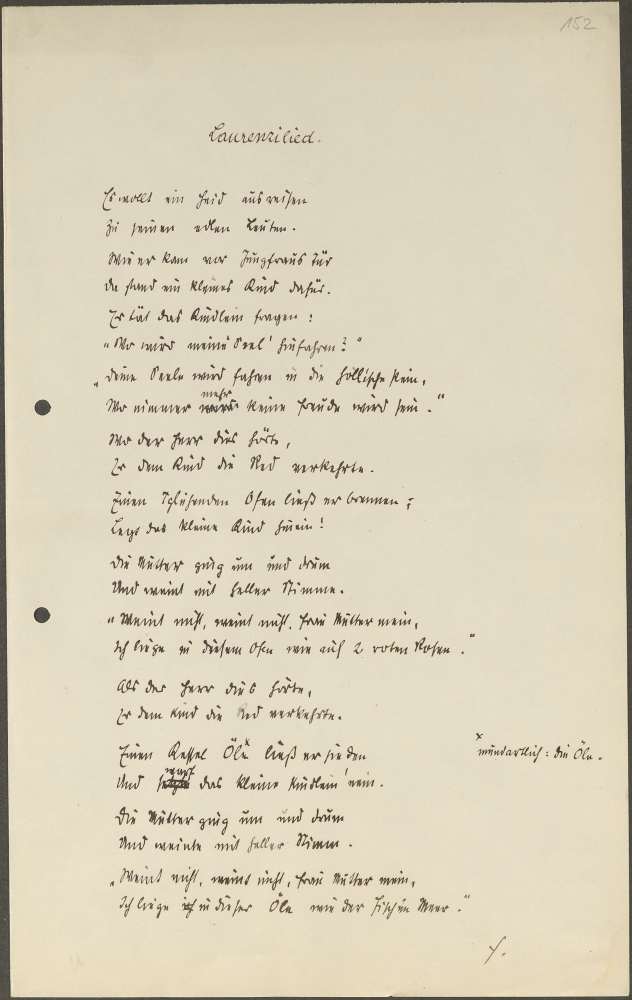 152
Laurenzilied.
Es wollt ein Heid ausreisen
Zu seinen edlen Leuten.
Wie er kam vor Jungfraus Tür
da stand ein kleines Kind dafür.
Er tät das Kindlein fragen:
"Wo wird meine Seel' hinfahren?"
"deine Seele wird fahren in die höllische Pein,
Wo nimmer mehr keine Freude wird sein."
Wo der Herr dies hörte,
Er dem Kind die Red verkehrte.
Einen glühenden Ofen ließ er brennen;
Legt das kleine Kind hinein!
die Mutter ging um und drum
Und weint mit heller Stimme.
"Weint nicht, weint nicht, Frau Mutter mein,
Ich liege in diesem Ofen wie auf 2 roten Rosen."
Als der Herr dies hörte,
Er dem Kind die Red verkehrte.
Einen Kessel Öle x ließ er sieden
x mundartlich: die Öle.
Und warf das kleine Kindlein 'nein.
die Mutter ging um und drum
Und weinte mit heller Stimm.
"Weint nicht, weint nicht, Frau Mutter mein,
Ich liege in dieser Öle wie der Fisch im Meer."